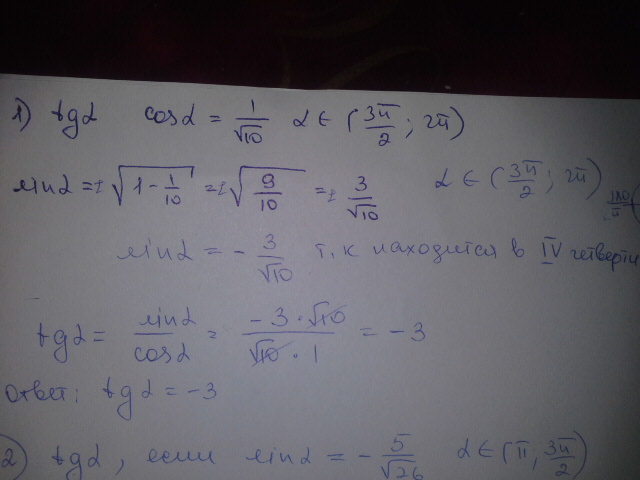 1) tgα cosα = 1/√10 α ∈ (3π/2; 2π)
sinα = ± √(1 - 1/10) = ± √(9/10) = ± 3/√10 α ∈ (3π/2; 2π)
sinα = - 3/√10 т.к находится в IV четверти
tgα = sinα/cosα = (-3 · √10)/(√10 · 1) = -3
Ответ: tgα = -3
2) tgα, если sinα = - 5/√26 α ∈ (π, 3π/2)